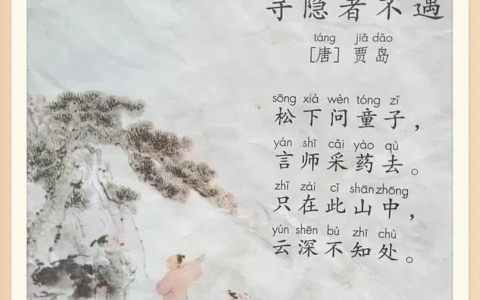 寻隐者不遇
táng jiǎ dǎo
［唐］贾岛
sōng xià wèn tóng zǐ
松下问童子，
yán shī cǎi yào qù
言师采药去。
zhǐ zài cǐ shān zhōng
只在此山中，
yún shēn bù zhī chù
云深不知处。